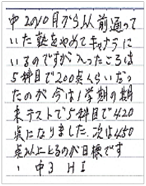 中2の10月から以前通って
いた塾をやめてキャナラに
いるのですが入ったころは
5科目で200点くらいだっ
たのが今は1学期の期
末テストで5科目で420
点になりました。次は450
点以上とるのが目標です
。中3 H I